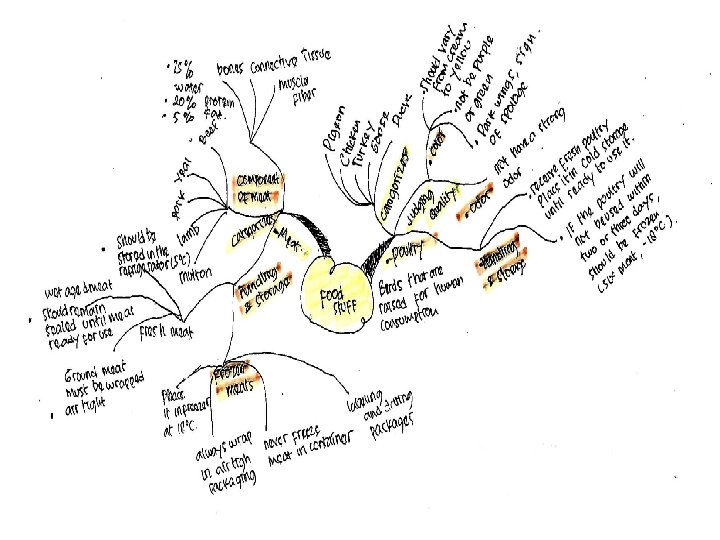 FOOD
STUFF
Meat
Component
of meat
• 75%
water
• 20% protein
• 5% fat.
bones
Connective Tissue
muscle
fiber
Categories
• Beef
veal
pork
lamb
mutton
Handling
& storage
fresh meat
• should be
stored in the
refrigerator (5°C)
• wet aged meat
should remain
sealed until meat
ready for use
• Ground meat
must be wrapped
air tight
meats
Place
it in freezer
at 18°C.
always wrap
in air tigh
packaging
never freeze
meat in container
labeling
and dating
packages
• Poultry
Birds that are
raised for human
consumption
Categories
Pigeon
Chicken
Turkey
Goose
Duck
Judging
Quality
• color
• should vary
from cream
to yellow
• not be purple
or green
• Dark wings, sign
of spoilage
• odor
not have a strong
odor
Handling
& storage
• receive fresh poultry
place it in cold storage
until ready to use it.
• IF the poultry will
not be used within
two or three days,
should be frozen
-18°C).